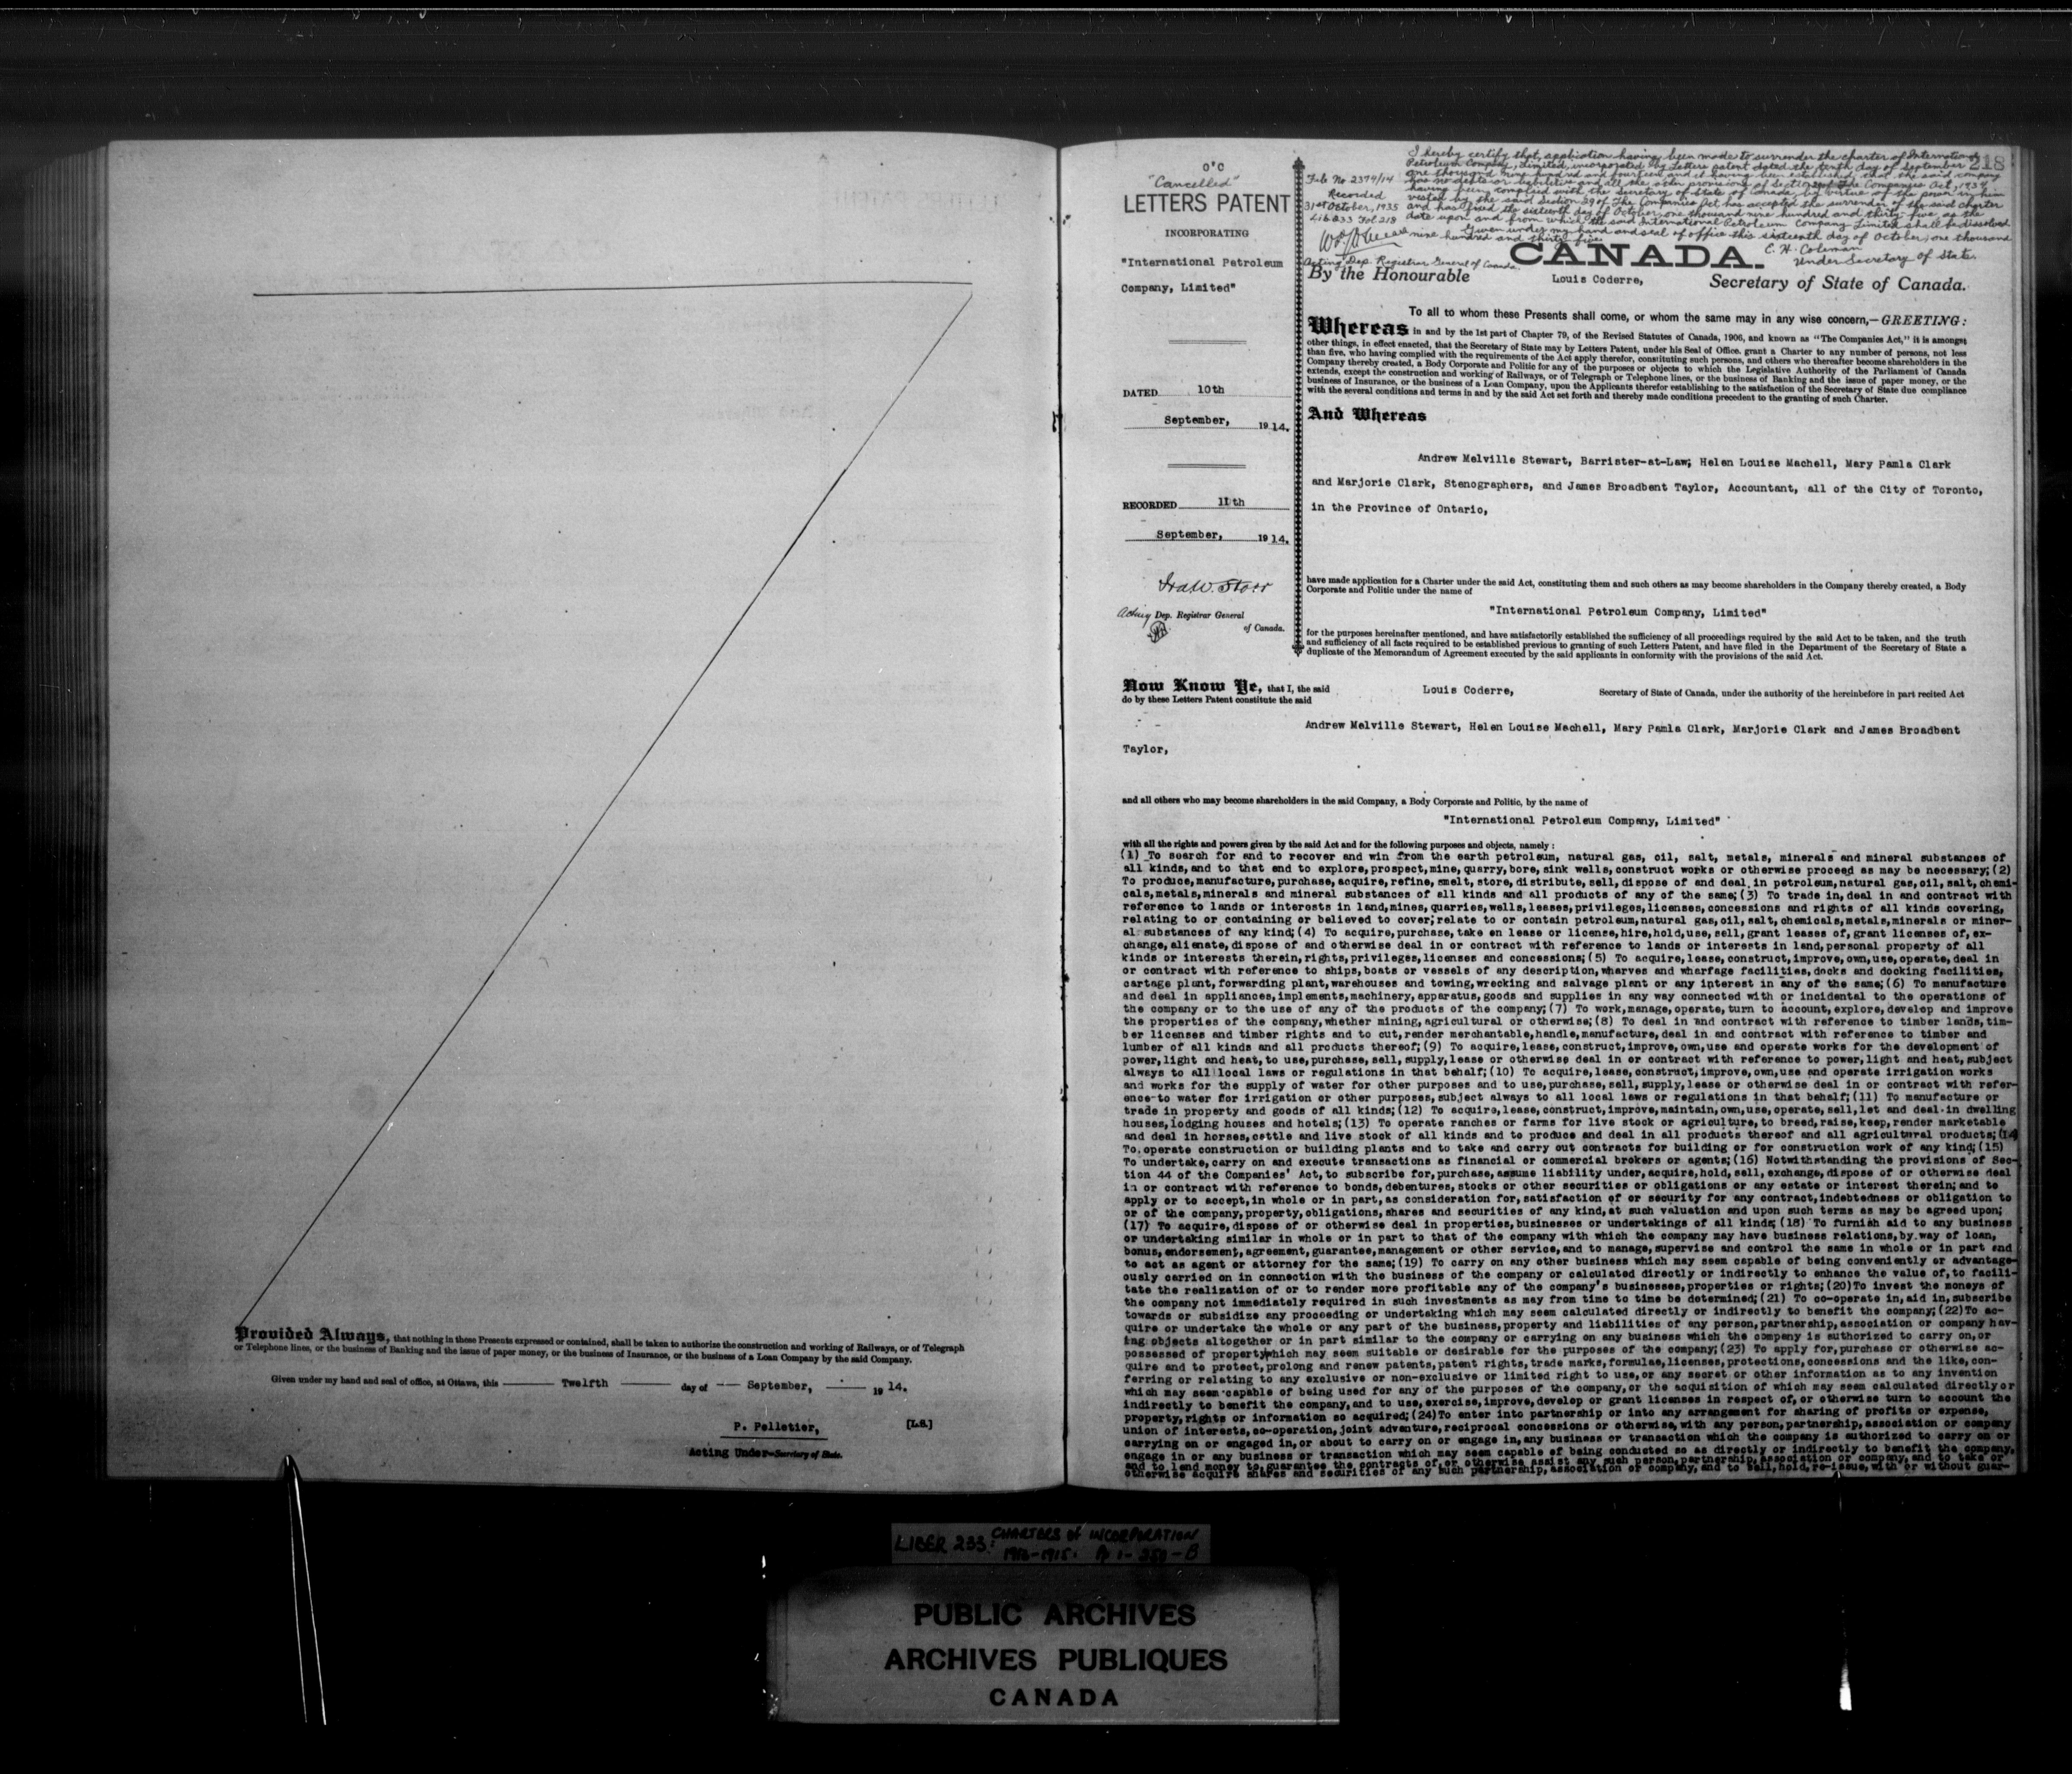 Provided Always, that nothing in these Presents expressed or contained, shall be taken to authorize the construction and working of Railways, or of Telegraph
or Telephone lines, or the business of Banking and the issue of paper money, or the business of Insurance, or the business of a Loan Company by the said Company.
Given under my hand and seal of office, at Ottawa, this Twelfth day of September, 1914.
P. Pelletier, [L.S.]
Acting Under-Secretary of State.
218
O'C
"Cancelled"
LETTERS PATENT
INCORPORATING
"International Petroleum
Company, Limited"
DATED 10th
September, 1914.
RECORDED 11th
September, 1914.
Acting Dep. Registrar General
of Canada.
File No 2374/14
Recorded
31st October, 1935
Lib 233 Fol 218
Acting Dep. Registrar General of Canada.
I hereby certify that, application having been made to surrender the charter of International
Petroleum Company, Limited, incorporated by Letters patent dated the tenth day of September
one thousand nine hundred and fourteen and it having been established, that the said company
has no debts or liabilities and all the other provisions of Section 29 of The Companies Act, 1934
having been complied with the Secretary of State of Canada by virtue of the power in him
vested by the said section 29 of The Companies Act has accepted the surrender of the said charter
and has fixed the sixteenth day of October, one thousand nine hundred and thirty-five as the
date upon and from which the said International Petroleum Company Limited shall be dissolved
Given under my hand and seal of office this sixteenth day of October, one thousand
nine hundred and thirty five
E. H. Coleman
Under Secretary of State.
CANADA.
By the Honourable Louis Coderre, Secretary of State of Canada.
To all to whom these Presents shall come, or whom the same may in any wise concern,—GREETING:
Whereas in and by the 1st part of Chapter 79, of the Revised Statutes of Canada, 1906, and known as "The Companies Act," it is amongst
other things, in effect enacted, that the Secretary of State may by Letters Patent, under his Seal of Office, grant a Charter to any number of persons, not less
than five, who having complied with the requirements of the Act apply therefor, constituting such persons, and others who thereafter become shareholders in the
Company thereby created, a Body Corporate and Politic for any of the purposes or objects to which the Legislative Authority of the Parliament of Canada
extends, except the construction and working of Railways, or of Telegraph or Telephone lines, or the business of Banking and the issue of paper money, or the
business of Insurance, or the business of a Loan Company, upon the Applicants therefor establishing to the satisfaction of the Secretary of State due compliance
with the several conditions and terms in and by the said Act set forth and thereby made conditions precedent to the granting of such Charter.
And Whereas
Andrew Melville Stewart, Barrister-at-Law; Helen Louise Machell, Mary Pamla Clark
and Marjorie Clark, Stenographers, and James Broadbent Taylor, Accountant, all of the City of Toronto,
in the Province of Ontario,
have made application for a Charter under the said Act, constituting them and such others as may become shareholders in the Company thereby created, a Body
Corporate and Politic under the name of
"International Petroleum Company, Limited"
for the purposes hereinafter mentioned, and have satisfactorily established the sufficiency of all proceedings required by the said Act to be taken, and the truth
and sufficiency of all facts required to be established previous to granting of such Letters Patent, and have filed in the Department of the Secretary of State a
duplicate of the Memorandum of Agreement executed by the said applicants in conformity with the provisions of the said Act.
Now Know Ye, that I, the said Louis Coderre, Secretary of State of Canada, under the authority of the hereinbefore in part recited Act
do by these Letters Patent constitute the said
Andrew Melville Stewart, Helen Louise Machell, Mary Pamla Clark, Marjorie Clark and James Broadbent
Taylor,
and all others who may become shareholders in the said Company, a Body Corporate and Politic, by the name of
"International Petroleum Company, Limited"
with all the rights and powers given by the said Act and for the following purposes and objects, namely :
(1) To search for and to recover and win from the earth petroleum, natural gas, oil, salt, metals, minerals and mineral substances of
all kinds, and to that end to explore, prospect, mine, quarry, bore, sink wells, construct works or otherwise proceed as may be necessary; (2)
To produce, manufacture, purchase, acquire, refine, smelt, store, distribute, sell, dispose of and deal in petroleum, natural gas, oil, salt, chemi-
cals, metals, minerals and mineral substances of all kinds and all products of any of the same; (3) To trade in, deal in and contract with
reference to lands or interests in land, mines, quarries, wells, leases, privileges, licenses, concessions and rights of all kinds covering,
relating to or containing or believed to cover, relate to or contain petroleum, natural gas, oil, salt, chemicals, metals, minerals or miner-
al substances of any kind; (4) To acquire, purchase, take on lease or license, hire, hold, use, sell, grant leases of, grant licenses of, ex-
change, alienate, dispose of and otherwise deal in or contract with reference to lands or interests in land, personal property of all
kinds or interests therein, rights, privileges, licenses and concessions; (5) To acquire, lease, construct, improve, own, use, operate, deal in
or contract with reference to ships, boats or vessels of any description, wharves and wharfage facilities, docks and docking facilities,
cartage plant, forwarding plant, warehouses and towing, wrecking and salvage plant or any interest in any of the same; (6) To manufacture
and deal in appliances, implements, machinery, apparatus, goods and supplies in any way connected with or incidental to the operations of
the company or to the use of any of the products of the company; (7) To work, manage, operate, turn to account, explore, develop and improve
the properties of the company, whether mining, agricultural or otherwise; (8) To deal in and contract with reference to timber lands, tim-
ber licenses and timber rights and to cut, render merchantable, handle, manufacture, deal in and contract with reference to timber and
lumber of all kinds and all products thereof; (9) To acquire, lease, construct, improve, own, use and operate works for the development of
power, light and heat, to use, purchase, sell, supply, lease or otherwise deal in or contract with reference to power, light and heat, subject
always to all local laws or regulations in that behalf; (10) To acquire, lease, construct, improve, own, use and operate irrigation works
and works for the supply of water for other purposes and to use, purchase, sell, supply, lease or otherwise deal in or contract with refer-
ence to water for irrigation or other purposes, subject always to all local laws or regulations in that behalf; (11) To manufacture or
trade in property and goods of all kinds; (12) To acquire, lease, construct, improve, maintain, own, use, operate, sell, let and deal in dwelling
houses, lodging houses and hotels; (13) To operate ranches or farms for live stock or agriculture, to breed, raise, keep, render marketable
and deal in horses, cattle and live stock of all kinds and to produce and deal in all products thereof and all agricultural products; (14
To operate construction or building plants and to take and carry out contracts for building or for construction work of any kind; (15)
To undertake, carry on and execute transactions as financial or commercial brokers or agents; (16) Notwithstanding the provisions of Sec-
tion 44 of the Companies' Act, to subscribe for, purchase, assume liability under, acquire, hold, sell, exchange, dispose of or otherwise deal
in or contract with reference to bonds, debentures, stocks or other securities or obligations or any estate or interest therein; and to
apply or to accept, in whole or in part, as consideration for, satisfaction of or security for any contract, indebtedness or obligation to
or of the company, property, obligations, shares and securities of any kind, at such valuation and upon such terms as may be agreed upon;
(17) To acquire, dispose of or otherwise deal in properties, businesses or undertakings of all kinds; (18) To furnish aid to any business
or undertaking similar in whole or in part to that of the company with which the company may have business relations, by way of loan,
bonus, endorsement, agreement, guarantee, management or other service, and to manage, supervise and control the same in whole or in part and
to act as agent or attorney for the same; (19) To carry on any other business which may seem capable of being conveniently or advantage-
ously carried on in connection with the business of the company or calculated directly or indirectly to enhance the value of, to facili-
tate the realization of or to render more profitable any of the company's businesses, properties or rights; (20) To invest the moneys of
the company not immediately required in such investments as may from time to time be determined; (21) To co-operate in, aid in, subscribe
towards or subsidize any proceeding or undertaking which may seem calculated directly or indirectly to benefit the company; (22) To ac-
quire or undertake the whole or any part of the business, property and liabilities of any person, partnership, association or company hav-
ing objects altogether or in part similar to the company or carrying on any business which the company is authorized to carry on, or
possessed of property which may seem suitable or desirable for the purposes of the company; (23) To apply for, purchase or otherwise ac-
quire and to protect, prolong and renew patents, patent rights, trade marks, formulae, licenses, protections, concessions and the like, con-
ferring or relating to any exclusive or non-exclusive or limited right to use, or any secret or other information as to any invention
which may seem capable of being used for any of the purposes of the company, or the acquisition of which may seem calculated directly or
indirectly to benefit the company, and to use, exercise, improve, develop or grant licenses in respect of, or otherwise turn to account the
property, rights or information so acquired; (24) To enter into partnership or into any arrangement for sharing of profits or expense,
union of interests, co-operation, joint adventure, reciprocal concessions or otherwise, with any person, partnership, association or company
carrying on or engaged in, or about to carry on or engage in, any business or transaction which the company is authorized to carry on or
engage in or any business or transaction which may seem capable of being conducted so as directly or indirectly to benefit the company,
and to lend money to, guarantee the contracts of, or otherwise assist any such person, partnership, association or company, and to take or
otherwise acquire shares and securities of any such partnership, association or company, and to sell, hold, re-issue, with or without guar-
LIBER 233: CHARTERS of INCORPORATION
PUBLIC ARCHIVES
ARCHIVES PUBLIQUES
CANADA